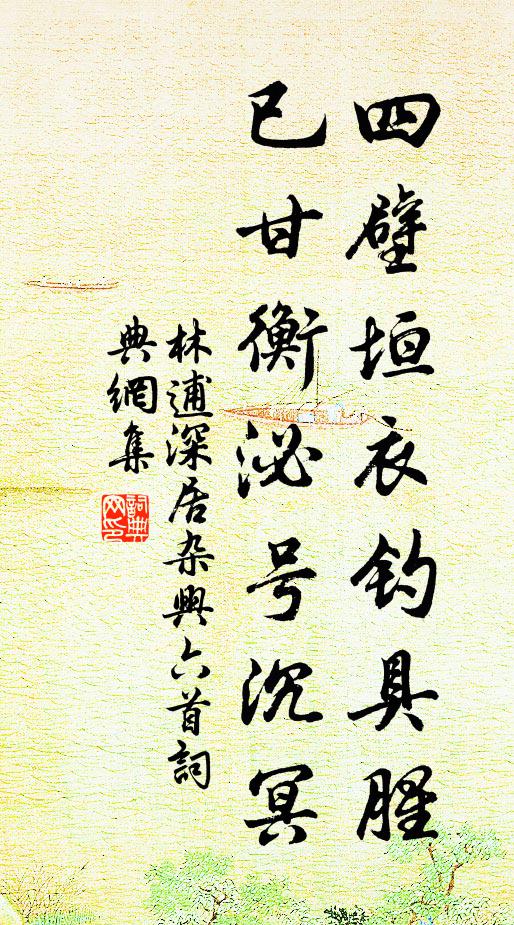 四壁垣衣钓具腥
已甘衡泌号沉冥
林逋深居杂興六首詞
典網集
詞典网印